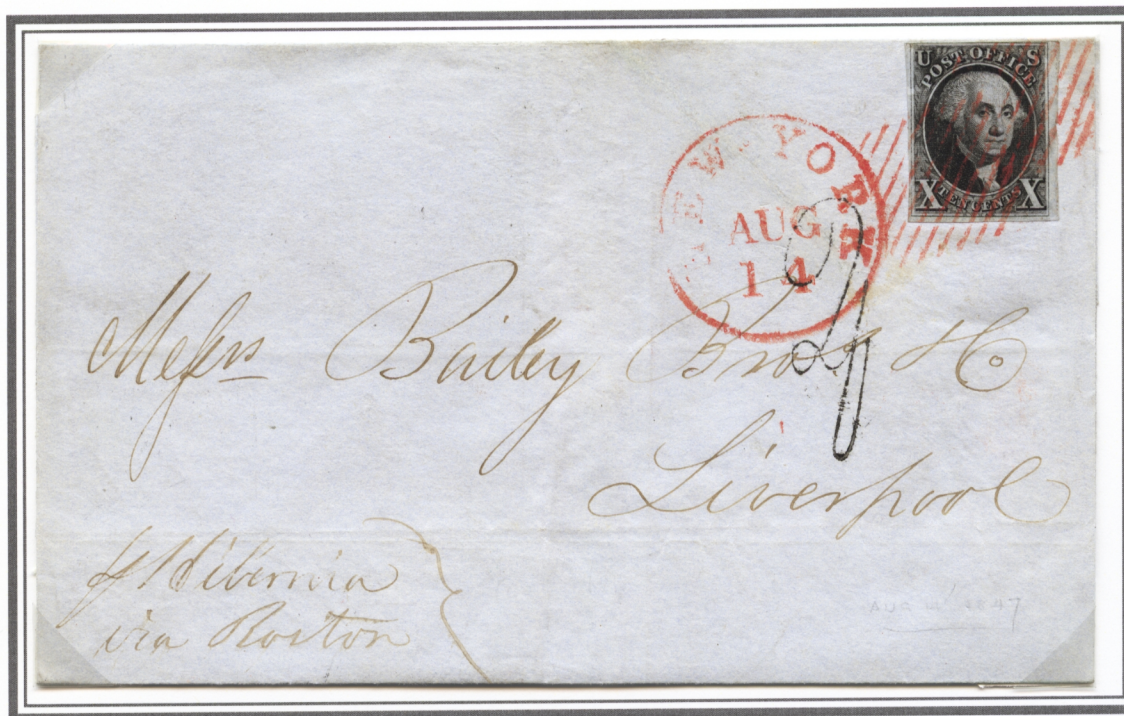 U S
POST OFFICE
X TEN CENTS X
NEW-YORK
AUG
14
Messrs Bailey Bros & Co
Liverpool
p Hibernia
via Boston
AUG 1847